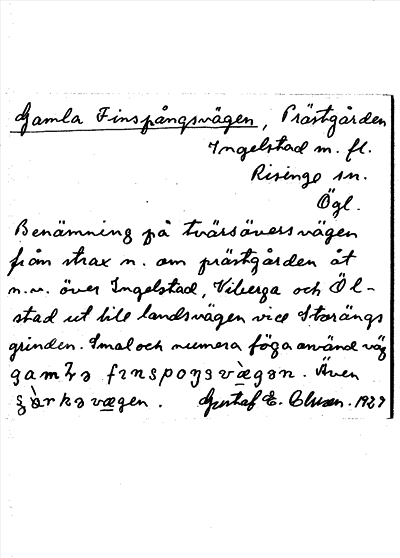 Gamla Finspångsvägen, Prästgården
Ingelstad m. fl.
Risinge sn.
Ögl.
Benämning på tvärsöversvägen
från strax n. om prästgården åt
n.v. över Ingelstad, Viberga och Öl-
stad ut till landsvägen vid Storängs
grinden. Smal och numera föga använd väg
gamɫə fınspoŋsvæ̀gən. Även
ʂɔ̀rkəvægen. Gustaf E. 1929